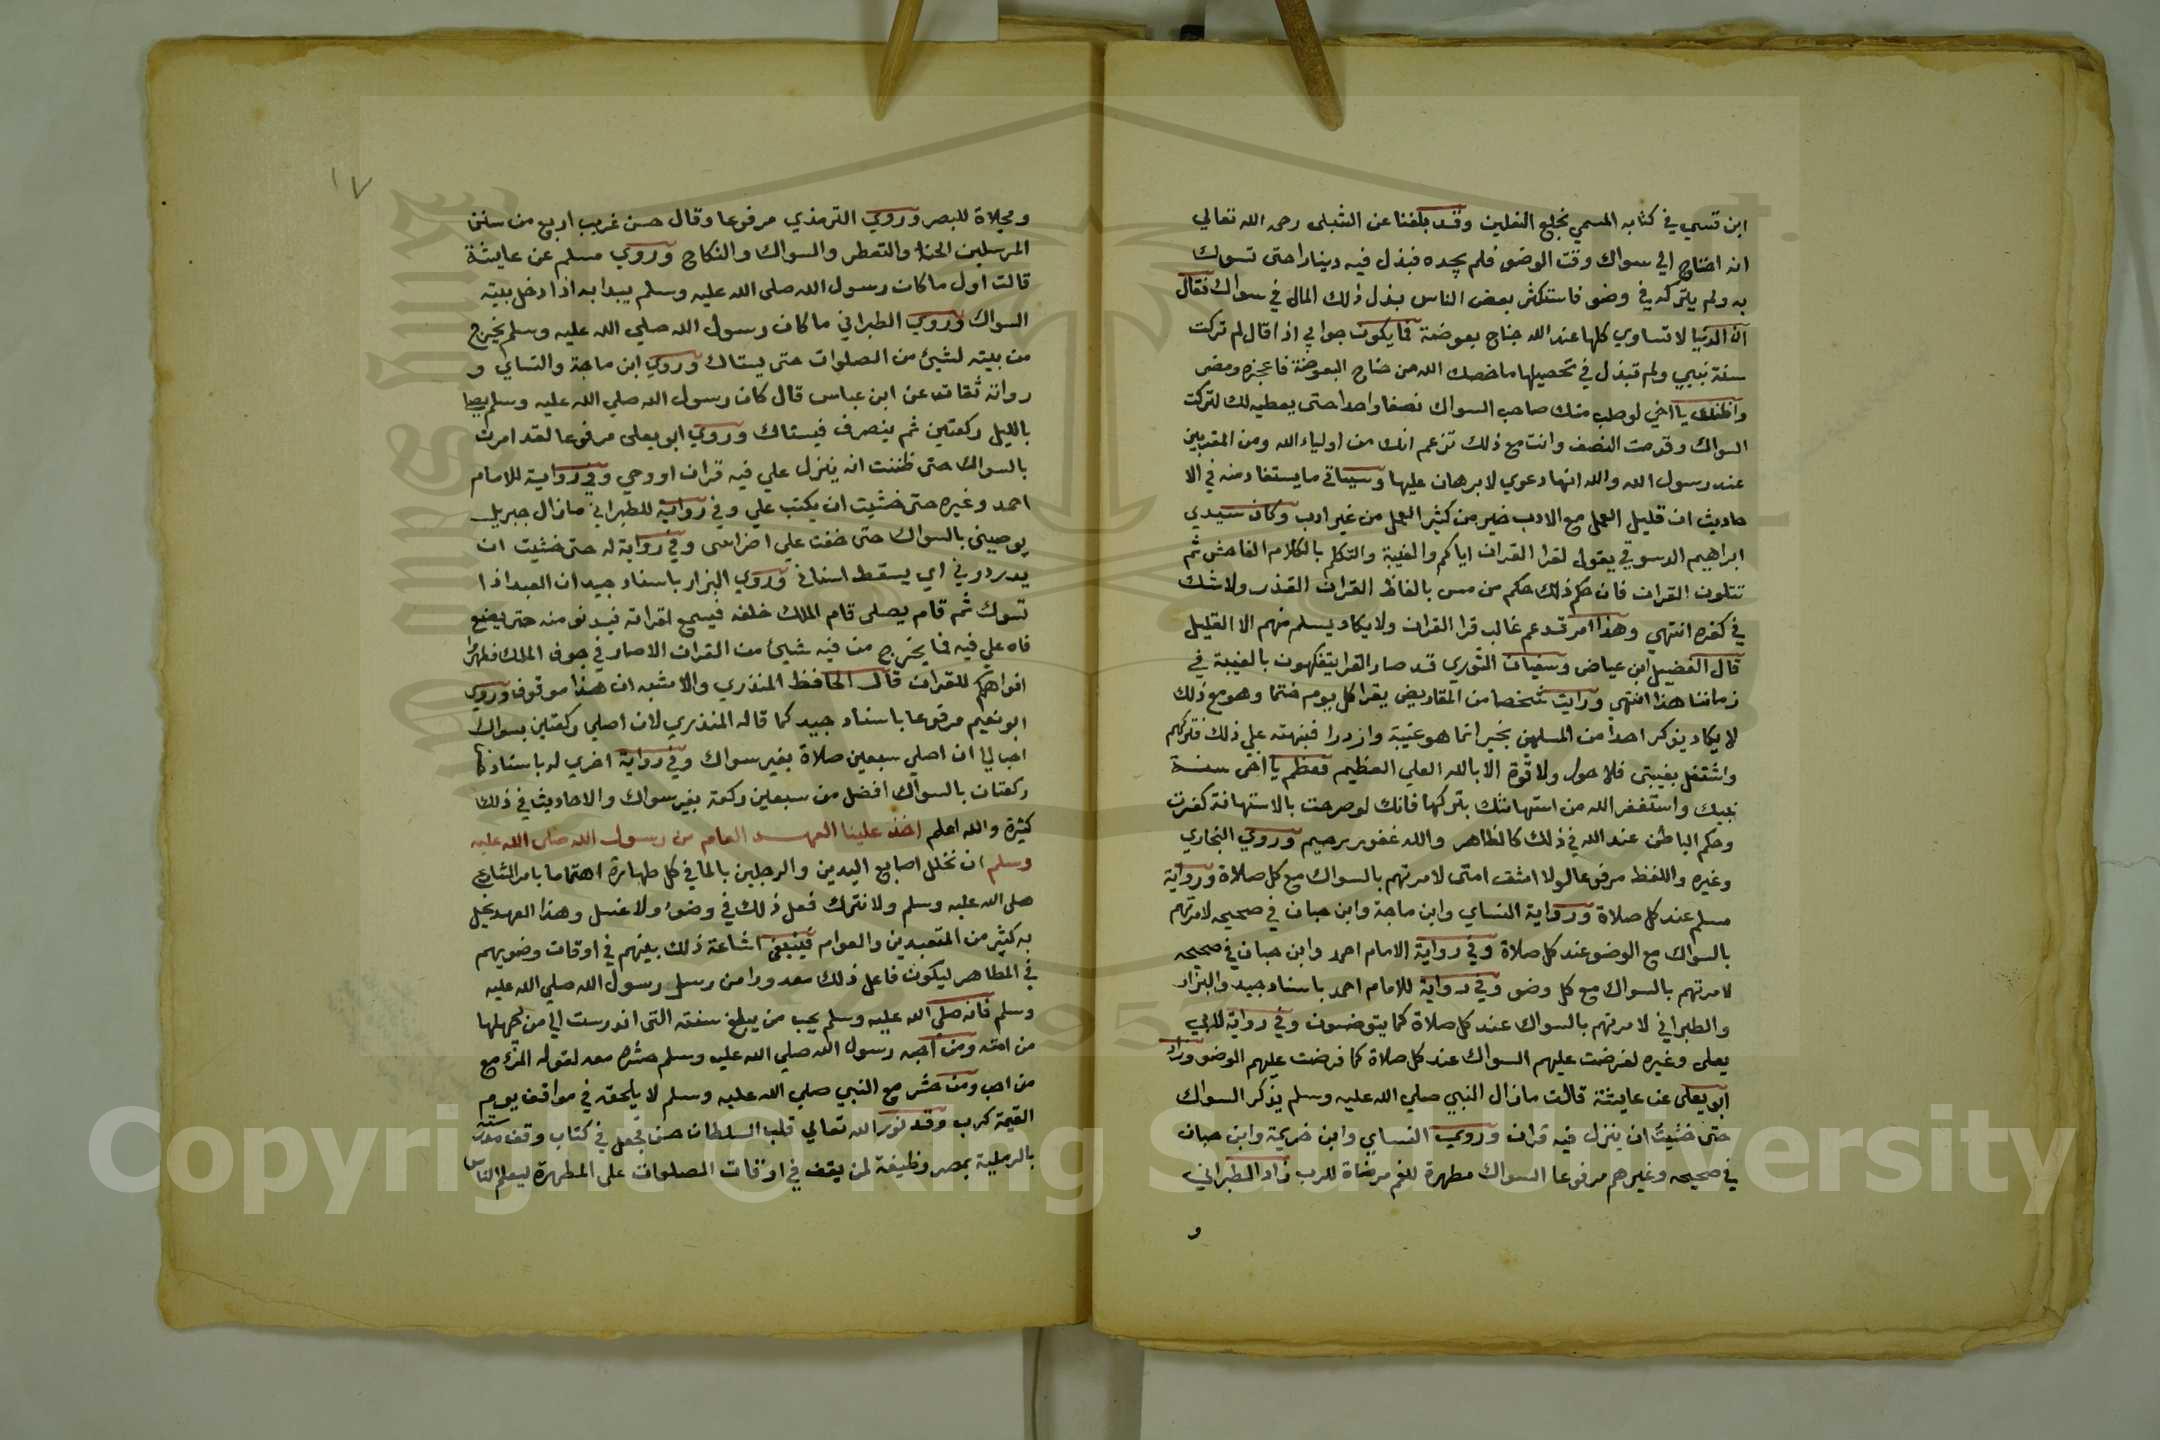 ابن قسي في كتابه المسمي بخلع النعلين وقد بلغنا عن الشبلى رحمه الله تعالي
انه احتاج الي سواك وقت الوضو فلم يجده فبذل فيه دينارا حتى تسوك
به ولم يتركه في وضو فاستكثر بعض الناس بذل ذلك المال في سواك فقال
ان الدنيا لا تساوي كلها عند الله جناح بعوضة فما يكون جوابي اذا قال لم تركت
سنة نبيي ولم تبذل في تحصيلها ما خصك الله من جناح البعوضة فاعجزه ومضى
واظنك يا اخي لو طلب منك صاحب السواك نصفا واحدا حتى يعطيه لك لتركت
السواك وقدمت النصف وانت مع ذلك تزعم انك من اولياء الله ومن المقربين
عند رسول الله والله انها دعوي لا برهان عليها وسياتي ما يستفاد منه في الا
حاديث ان قليل العمل مع الادب خير من كثير العمل من غير ادب وكان سيدي
ابراهيم الدسوقي يقول لقرا القران اياكم والغيبة والتكلم بالكلام الفاحش ثم
تتلون القران فان حكم ذلك حكم من مس بالفاظ القران القذر ولا شك
في كفره انتهي وهذا امر قد عم غالب قرا القران ولا يكاد يسلم منهم الا القليل
قال الفضيل ابن عياض وسفيان الثوري قد صار القرا يتفكهون بالغيبة في
زماننا هذا انتهي ورايت شخصا من يقرا كل يوم ختما وهو مع ذلك
لا يكاد يذكر احدا من المسلمين بخير انما هو غيبة وازدرا فنبهته علي ذلك فتركهم
واشتغل بغيبتى فلا حول ولا قوة الا بالله العلي العظيم فعظم يا اخى سنة
نبيك واستغفر الله من استهانتك بتركها فانك لو صرحت بالاستهانة كفرت
وحكم الباطن عند الله في ذلك كالظاهر والله غفور رحيم وروي البخاري
وغيره واللفظ مرفوعا لولا اشق امتى لامرتهم بالسواك مع كل صلاة ورواية
مسلم عند كل صلاة ورواية النساي وابن ماجة وابن حبان في صحيحه لامرتهم
بالسواك مع الوضو عند كل صلاة وفي رواية الامام احمد وابن حبان في صحيحه
لامرتهم بالسواك مع كل وضو وفي رواية للامام احمد باسناد جيد والبزار
والطبراني لامرتهم بالسواك عند كل صلاة كما يتوضون وفي رواية لابي
يعلى وغيره لفرضت عليهم السواك عند كل صلاة كما فرضت عليهم الوضو وزاد
ابو يعلى عن عايشة قالت مازال النبي صلي الله عليه وسلم يذكر السواك
حتى خشيت ان ينزل فيه قران وروي النساي وابن خزيمة وابن حبان
في صحيحه وغيرهم مرفوعا السواك مطهرة للفم مرضاة للرب زاد الطبراني
و
١٧
ومجلاة للبصر وروي الترمذي مرفوعا وقال حسن غريب اربع من سنن
المرسلين الحنا والتعطر والسواك والنكاح وروي مسلم عن عايشة
قالت اول ما كان رسول الله صلى الله عليه وسلم يبدا به اذا دخل بيته
السواك وروي الطبراني ما كان رسول الله صلي الله عليه وسلم يخرج
من بيته لشيئ من الصلوات حتى يستاك وروي ابن ماجة والنساي و
رواته ثقات عن ابن عباس قال كان رسول الله صلي الله عليه وسلم يصلي
بالليل ركعتين ثم ينصرف فيستاك وروي ابو يعلى مرفوعا لقد امرت
بالسواك حتى ظننت انه ينزل علي فيه قران او وحي وفي رواية للامام
احمد وغيره حتى خشيت ان يكتب علي وفي رواية للطبراني مازال جبريل
يوصيني بالسواك حتى خفت علي اضراسى وفي رواية له حتى خشيت ان
يدردرني اي يسقط اسناني وروي البزار باسناد جيد ان العبد اذا
تسوك ثم قام يصلى قام الملك خلفه فيسمع لقراته فيدنو منه حتى يضع
فاه علي فيه فما يخرج من فيه شيئ من القران الا صار في جوف الملك فطهروا
افواهكم للقران قال الحافظ المنذري والاشبه ان هذا موقوف وروي
ابو نعيم مرفوعا باسناد جيد كما قاله المنذري لان اصلي ركعتين بسواك
احب الي ان اصلي سبعين صلاة بغير سواك وفي رواية اخري له باسناد
ركعتان بالسواك افضل من سبعين ركعة بغير سواك والاحاديث في ذلك
كثيرة والله اعلم اخذ علينا العهد العام من رسول الله صلى الله عليه
وسلم ان نخلل اصابع اليدين والرجلين بالما في كل طهارة اهتماما بامر الشارع
صلى الله عليه وسلم ولا نترك فعل ذلك في وضوء ولا غسل وهذا العهد يخل
به كثير من المتعبدين والعوام فينبغى اشاعة ذلك بينهم في اوقات وضويهم
في المطاهر ليكون فاعل ذلك معدودا من رسل رسول الله صلي الله عليه
وسلم فانه صلي الله عليه وسلم يحب من يبلغ سنته التى اندرست الي من يجهلها
من امته ومن احبه رسول الله صلي الله عليه وسلم حشره معه لقوله المرء مع
من احب ومن حشر مع النبي صلي الله عليه وسلم لا يلحقه في مواقف يوم
القيمة كرب وقد نور الله تعالي قلب السلطان حسن فجعل في كتاب وقف مدرسته
بالرميلية بمصر وظيفة لمن يقف في اوقات الصلوات على المطهرة ليعلم الناس
Copyright © King Saud University